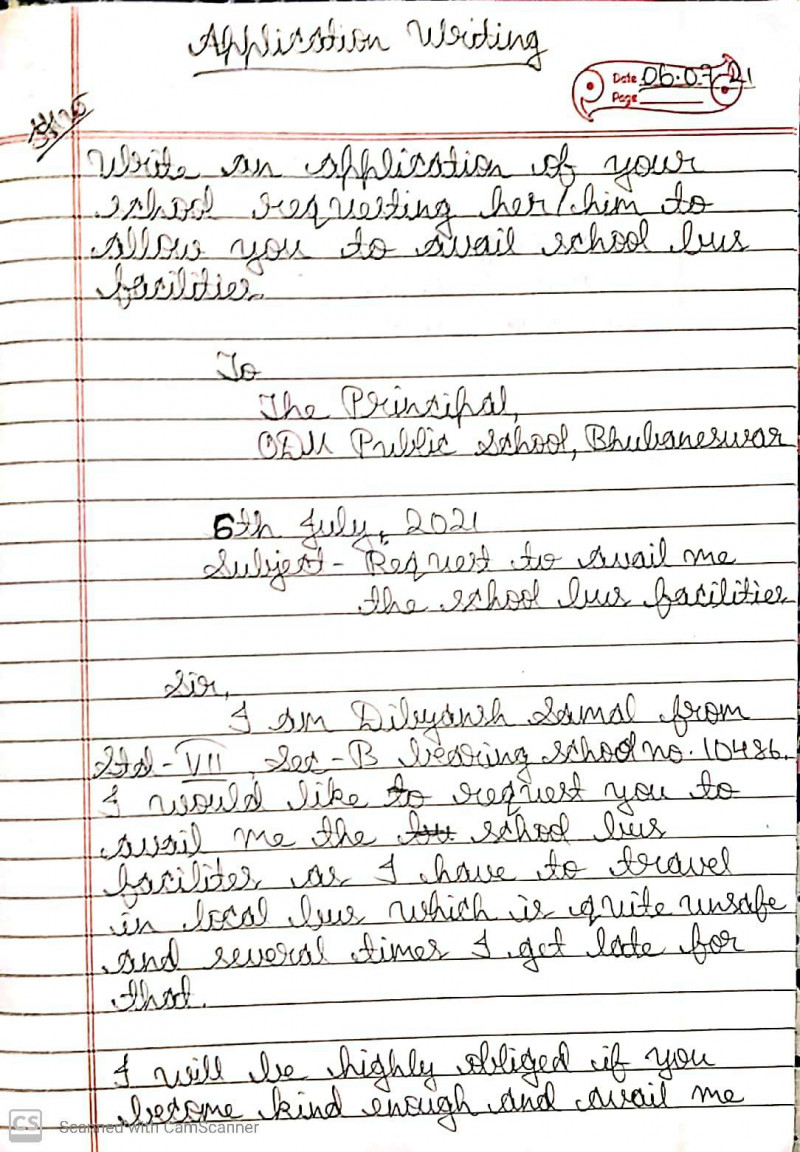 Application Writing
Date 06.07.21
Page
Write an application of your
school requesting her/him to
allow you to avail school bus
facilities.
To
The Principal,
ODM Public School, Bhubaneswar
6th July, 2021
Subject - Request to avail me
the school bus facilities
Sir,
I am Dibyansh Samal from
Std - VII, Sec - B bearing school no. 10486.
I would like to request you to
avail me the school bus
facilites as I have to travel
in local bus which is quite unsafe
and several times I get late for
that.
I will be highly obliged if you
become kind enough and avail me
CS Scanned with CamScanner